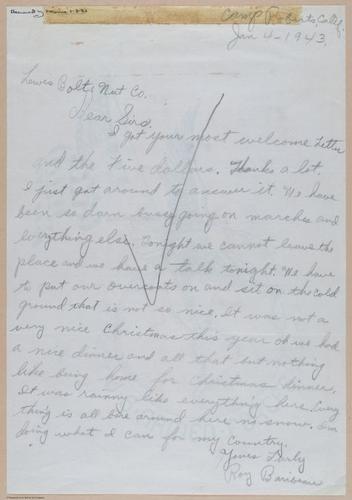 Camp Roberts, Calif.
Jan 4-1943.
Lewis Bolt & Nut Co.
Dear Sirs,
I got your most welcome letter
and the Five dollars. Thanks a lot.
I just got around to answer it. We have
been so darn busy going on marches and
everything else. Tonight we cannot leave the
place and we have a talk tonight. We have
to put our overcoats on and sit on the cold
ground that is not so nice. It was not a
very nice Christmas this year oh we had
a nice dinner and all that but nothing
like being home for Christmas dinner.
It was rainy like everything here. Every
thing is all bare around here no snow. Im
doing what I can for my Country.
Yours Truly
Roy